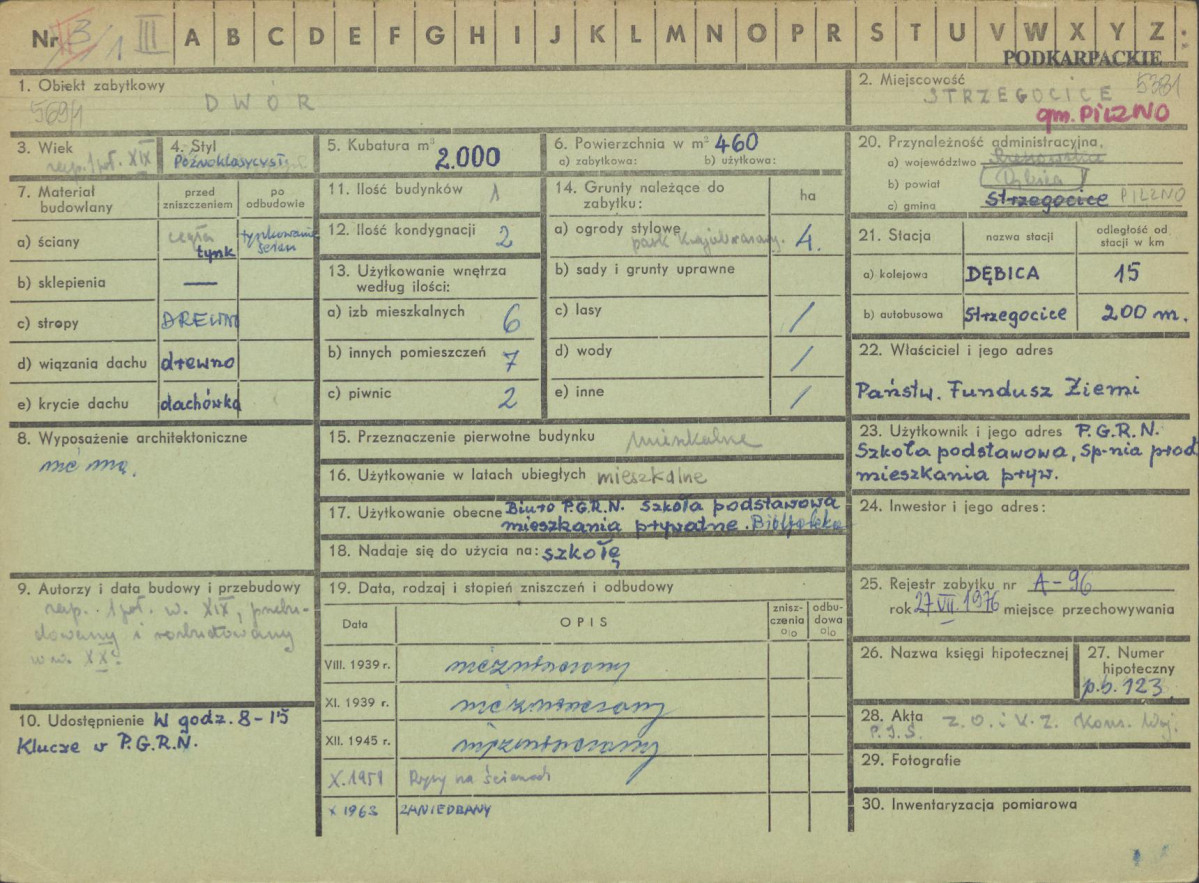 Nr 3/1 III A B C D E F G H I J K L M N O P R S T U V W X Y Z
PODKARPACKIE
1. Obiekt zabytkowy
569/1
DWÓR
2. Miejscowość 5381
STRZEGOCICE
gm. PILZNO
3. Wiek
XIX
4. Styl
Późnoklasycyst.
5. Kubatura m³
2.000
6. Powierzchnia w m² 460
a) zabytkowa: b) użytkowa:
20. Przynależność administracyjna
a) województwo
b) powiat Dębica
c) gmina Strzegocice PILZNO
7. Materiał budowlany
przed zniszczeniem
po odbudowie
a) ściany cegła tynk tynkowanie ścian
b) sklepienia —
c) stropy DREWN
d) wiązania dachu drewno
e) krycie dachu dachówka
11. Ilość budynków 1
12. Ilość kondygnacji 2
13. Użytkowanie wnętrza według ilości:
a) izb mieszkalnych 6
b) innych pomieszczeń 7
c) piwnic 2
14. Grunty należące do zabytku:
ha
a) ogrody stylowe park krajobrazowy. 4.
b) sady i grunty uprawne
c) lasy /
d) wody /
e) inne /
21. Stacja
nazwa stacji
odległość od stacji w km
a) kolejowa DĘBICA 15
b) autobusowa Strzegocice 200 m.
22. Właściciel i jego adres
Państw. Fundusz Ziemi
8. Wyposażenie architektoniczne
nie ma.
15. Przeznaczenie pierwotne budynku mieszkalne
16. Użytkowanie w latach ubiegłych mieszkalne
17. Użytkowanie obecne Biuro P.G.R.N. Szkoła podstawowa
mieszkania prywatne. Biblioteka
18. Nadaje się do użycia na: szkołę
23. Użytkownik i jego adres P.G.R.N.
Szkoła podstawowa, Sp-nia prod
mieszkania pryw.
24. Inwestor i jego adres:
9. Autorzy i data budowy i przebudowy
1 poł. w. XIX, przebu-
dowany i rozbudowany
w w. XX.
19. Data, rodzaj i stopień zniszczeń i odbudowy
Data
OPIS
znisz-czenia o|o
odbu-dowa o|o
VIII. 1939 r. niezniszczony
XI. 1939 r. niezniszczony
XII. 1945 r. niezniszczony
X. 1959 Rysy na ścianach
X 1963 ZANIEDBANY
25. Rejestr zabytku nr A-96
rok 27.VII.1976 miejsce przechowywania
26. Nazwa księgi hipotecznej
27. Numer hipoteczny
p.b. 123
10. Udostępnienie W godz. 8-15
Klucze w P.G.R.N.
28. Akta Z.O.i K.Z. Kons. Woj.
P.I.S.
29. Fotografie
30. Inwentaryzacja pomiarowa